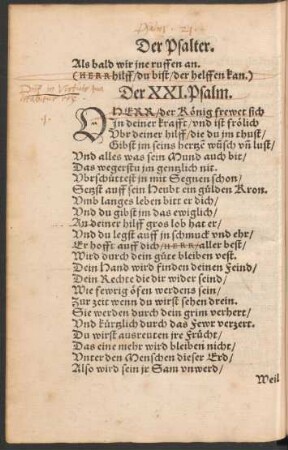 Der Psalter.
Als bald wir jne ruffen an.
(HERR hilff/du bist/der helffen kan.)
Der XXI. Psalm.
O HERR/der König frewet sich
in deiner krafft/vnd ist frölich
Vbr deiner hilff/die du jm thust/
Gibst jm seins hertzē wüsch vn̄ lust/
Vnd alles was sein Mund auch bit/
Das wegerstu jm gentzlich nit.
Vbrschüttest jn mit Segnen schon/
Setzst auff sein Heubt ein gülden Kron.
Vmb langes leben bitt er dich/
Vnd du gibst jm das ewiglich/
An deiner hilff gros lob hat er/
Vnd du legst auff jn schmuck vnd ehr/
Er hofft auff dich/HERR/aller best/
Wird durch dein güte bleiben vest.
Dein Hand wird finden deinen Feind/
Dein Rechte die dir wider seind/
Wie fewrig ösen werdens sein/
Zur zeit wenn du wirst sehen drein.
Sie werden durch dein grim verhert/
Vnd kürtzlich durch das Fewr verzert.
Du wirst ausreuten jre Frücht/
Das eine mehr wird bleiben nicht/
Vnter den Menschen dieser Erd/
Also wird sein jr Sam vnwerd/
Weil